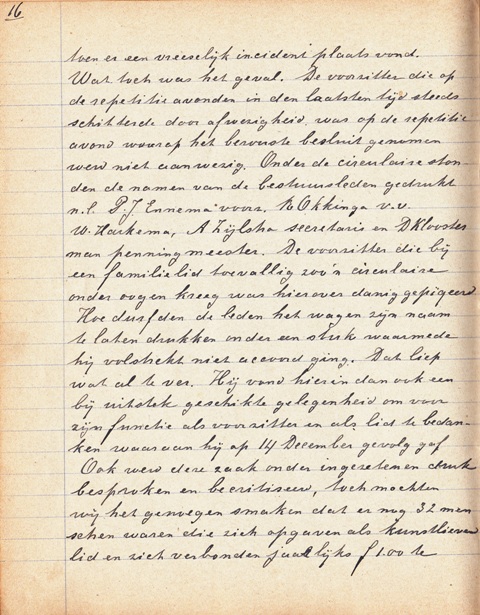 16
toen er een vreeselijk incident plaats vond.
Wat toch was het geval. De voorzitter die op
de repetitie avonden in den laatsten tijd steeds
schitterde door afwezigheid, was op de repetitie
avond waarop het bewuste besluit genomen
werd niet aanwezig. Onder de circulaire ston-
den de namen van de bestuursleden gedrukt
n.l. P.J. Ennema voorz. R Okkinga v.v.
W. Harkema, A Zijlstra secretaris en D Klooster
man penningmeester. De voorzitter die bij
een familielid toevallig zoo'n circulaire
onder oogen kreeg was hierover danig gepiqeerd
Hoe durfden de leden het wagen zijn naam
te laten drukken onder een stuk waarmede
hij volstrekt niet accoord ging. Dat liep
wat al te ver. Hij vond hierin dan ook een
bij uitstek geschikte gelegenheid om voor
zijn functie als voorzitter en als lid te bedan-
ken waaraan hij op 14 December gevolg gaf
Ook werd deze zaak onder ingezetenen druk
besproken en becritiseerd, toch mochten
wij het genoegen smaken dat er nog 32 men
schen waren die zich opgaven als kunstlievend
lid en zich verbonden jaarlijks f 1.00 te